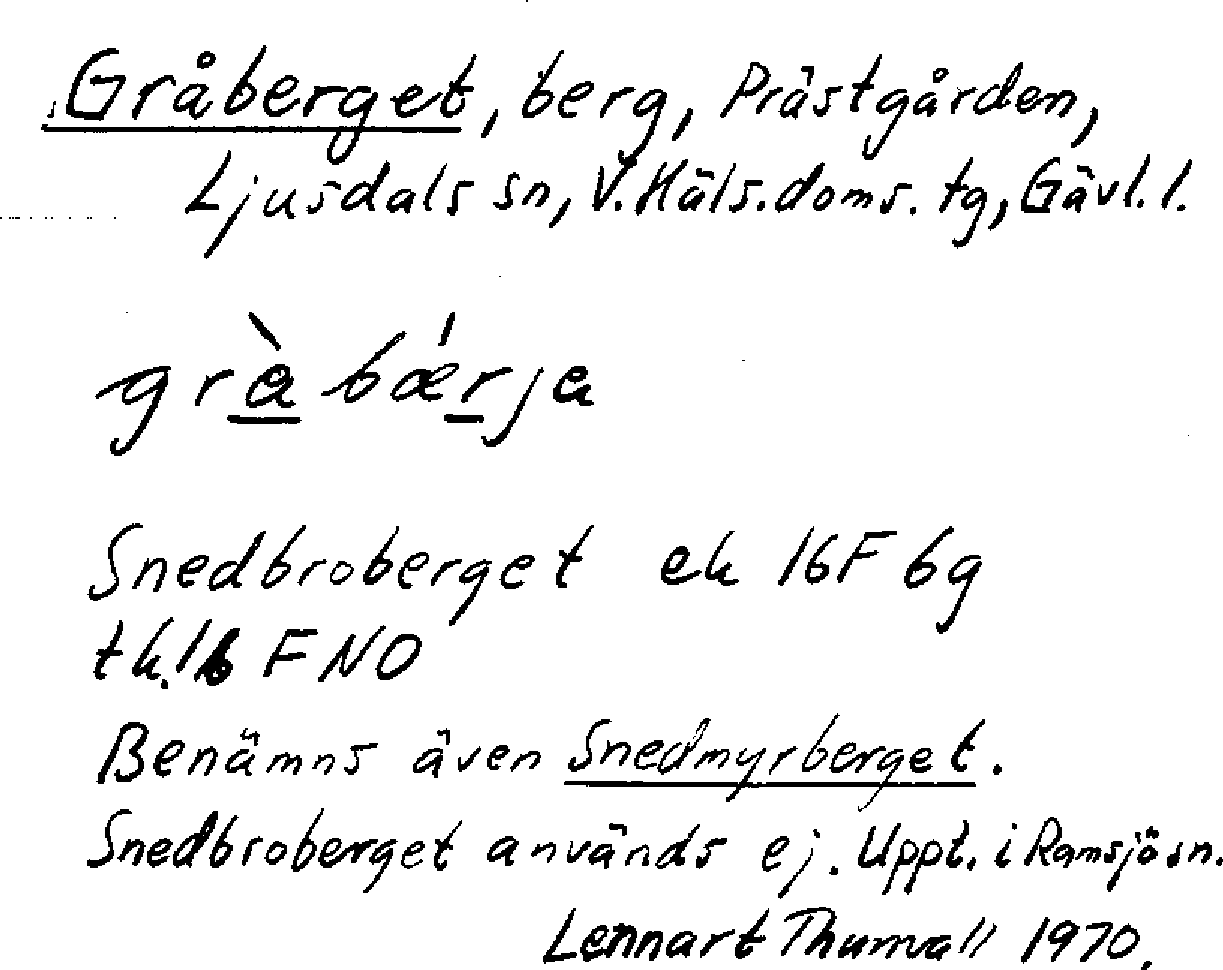 Gråberget, berg, Prästgården,
Ljusdals sn, V. Häls. doms. tg, Gävl. l.
grà bǽrja
Snedbroberget ek 16F 6g
tk. 16 F NO
Benämns även Snedmyrberget.
Snedbroberget används ej. Uppt. i Ramsjö sn.
Lennart Thumvall 1970.